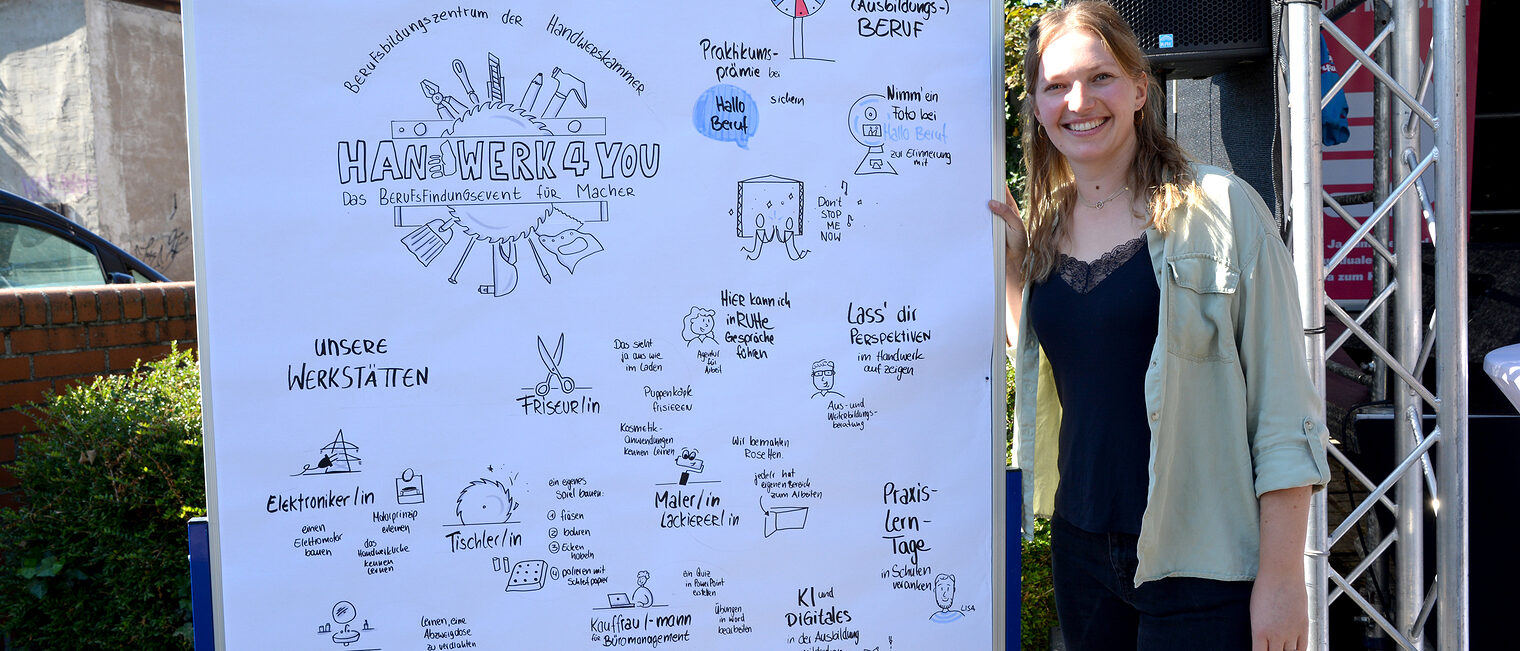 Berufsbildungszentrum der Handwerkskammer
HANDWERK 4 YOU
Das Berufsfindungsevent für Macher
(Ausbildungs-)
BERUF
Praktikums-
prämie bei
Hallo
Beruf
sichern
Nimm' ein
Foto bei
Hallo Beruf
zur Erinnerung
mit
Don't
STOP
ME
NOW
UNSERE
WERKSTÄTTEN
FRISEUR/in
Das sieht
ja aus wie
im Laden
Puppenköpfe
frisieren
Kosmetik-
anwendungen
kennen lernen
Agentur
für
Arbeit
HIER kann ich
in RUHe
Gespräche
führen
Lass' dir
Perspektiven
im Handwerk
aufzeigen
Aus- und
Weiterbildungs-
beratung
Elektroniker/in
einen
Elektromotor
bauen
Motorprinzip
erlernen
das
Handwerkliche
kennen
lernen
Tischler/in
ein eigenes
Spiel bauen:
1 fräsen
2 bohren
3 Ecken
hobeln
4 polieren mit
Schleifpapier
Maler/in
Lackierer/in
Wir bemahlen
Rosetten.
jede/r hat
eigenen Bereich
zum Arbeiten
Praxis-
Lern-
Tage
in Schulen
verankern
LISA
Lernen, eine
Abzweigdose
zu verdrahten
Kauffrau/-mann
für Büromanagement
ein Quiz
in PowerPoint
erstellen
Übungen
in Word
bearbeiten
KI und
DIGITALES
in der Ausbildung